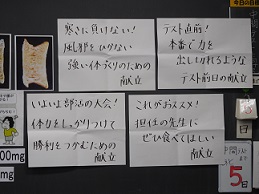 寒さに負けない!
風邪をひかない
強い体づくりのための
献立
テスト直前!
本番で力を
出しきれるような
テスト前日の献立
いよいよ部活の大会!
体力をしっかりつけて
勝利をつかむための
献立
これがおススメ!
担任の先生に
ぜひ食べてほしい
献立
日
5
日
00mg
mg